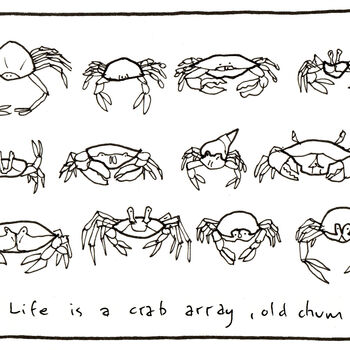 Life is a crab array, old chum